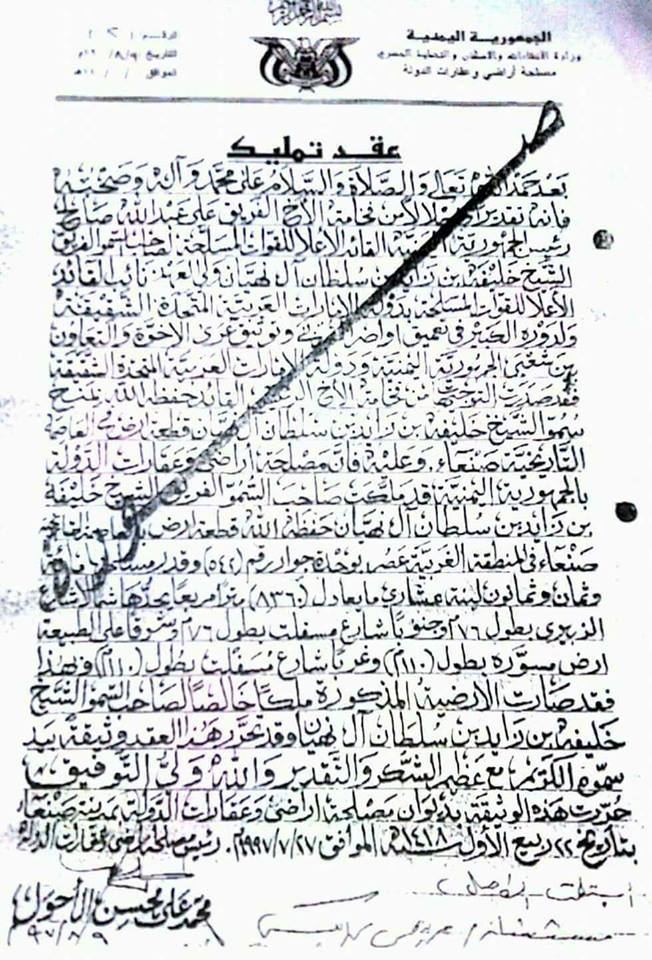 بسم الله الرحمن الرحيم
الجمهورية اليمنية
مصلحة أراضي وعقارات الدولة
الرقم
التاريخ
الموافق
عقد تمليك
بعد حمد الله تعالى والصلاة والسلام على محمد وآله وصحبه
فإنه تقديراً من فخامة الأخ الفريق علي عبدالله صالح
رئيس الجمهورية اليمنية القائد الأعلا للقوات المسلحة لصاحب السمو الفريق
الشيخ خليفة بن زايد بن سلطان آل نهيان ولي العهد نائب القائد
الأعلا للقوات المسلحة بدولة الإمارات العربية المتحدة الشقيقة
ولدوره الكبير في تعميق أواصر وتوثيق عرى الإخوة والتعاون
بين شعبي الجمهورية اليمنية ودولة الإمارات العربية المتحدة الشقيقة
فقد صدرت التوجيهات من فخامة الأخ الرئيس القائد حفظه الله بمنح
سمو الشيخ خليفة بن زايد بن سلطان آل نهيان قطعة أرض في العاصمة
التاريخية صنعاء. وعليه فإن مصلحة أراضي وعقارات الدولة
بالجمهورية اليمنية قد ملكت صاحب السمو الفريق الشيخ خليفة
بن زايد بن سلطان آل نهيان حفظه الله قطعة أرض
صنعاء في المنطقة الغربية عصر بوحدة جوار رقم (٥٤٢) وقدر مساحتها مائة
وثمان وثمانون لبنة عشاري ما يعادل (٨٣٦٠) متراً مربعاً يحدها شمالاً شارع
الزبيري بطول ٧٦م وجنوباً شارع مسفلت بطول ٧٦م وشرقاً على الطبيعة
أرض مسورة بطول (١١٠م) وغرباً شارع مسفلت بطول (١١٠م) وبهذا
فقد صارت الأرضية المذكورة ملكاً خالصاً لصاحب السمو الشيخ
خليفة بن زايد بن سلطان آل نهيان وقد تحرر هذا العقد وثيقة بيد
سموه الكريم مع عظيم الشكر والتقدير والله ولي التوفيق،،
حررت هذه الوثيقة بديوان مصلحة أراضي وعقارات الدولة بمدينة صنعاء
بتاريخ ٢٢ ربيع الأول سنة ١٤١٨ه الموافق ٢٧/٧/١٩٩٧م. رئيس مصلحة أراضي وعقارات الدولة
محمد علي محسن الأحول